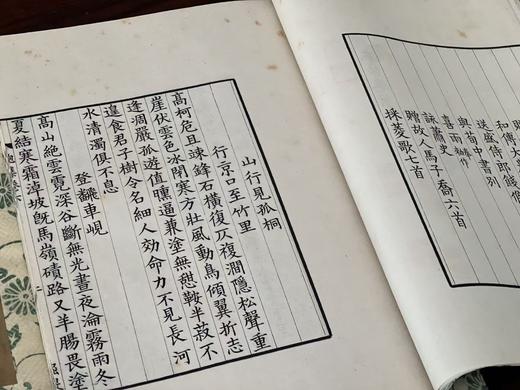 和傅大農與僚
送盛侍郎餞候
與荀中書別
喜雨
詠蕭史
贈故人馬子喬六首
採菱歌七首
山行見孤桐
行京口至竹里
高柯危且竦鋒石橫復仄複澗隱松聲重
崖伏雲色冰閉寒方壯風動鳥傾翼折志
逢凋嚴孤遊值曛逼兼塗無憩鞍半菽不
遑食君子樹令名細人効命力不見長河
水清濁俱不息
登翻車峴
高山絕雲霓深谷斷無光晝夜淪霧雨冬
夏結寒霜淖坂既馬嶺磧路又羊腸畏塗
二